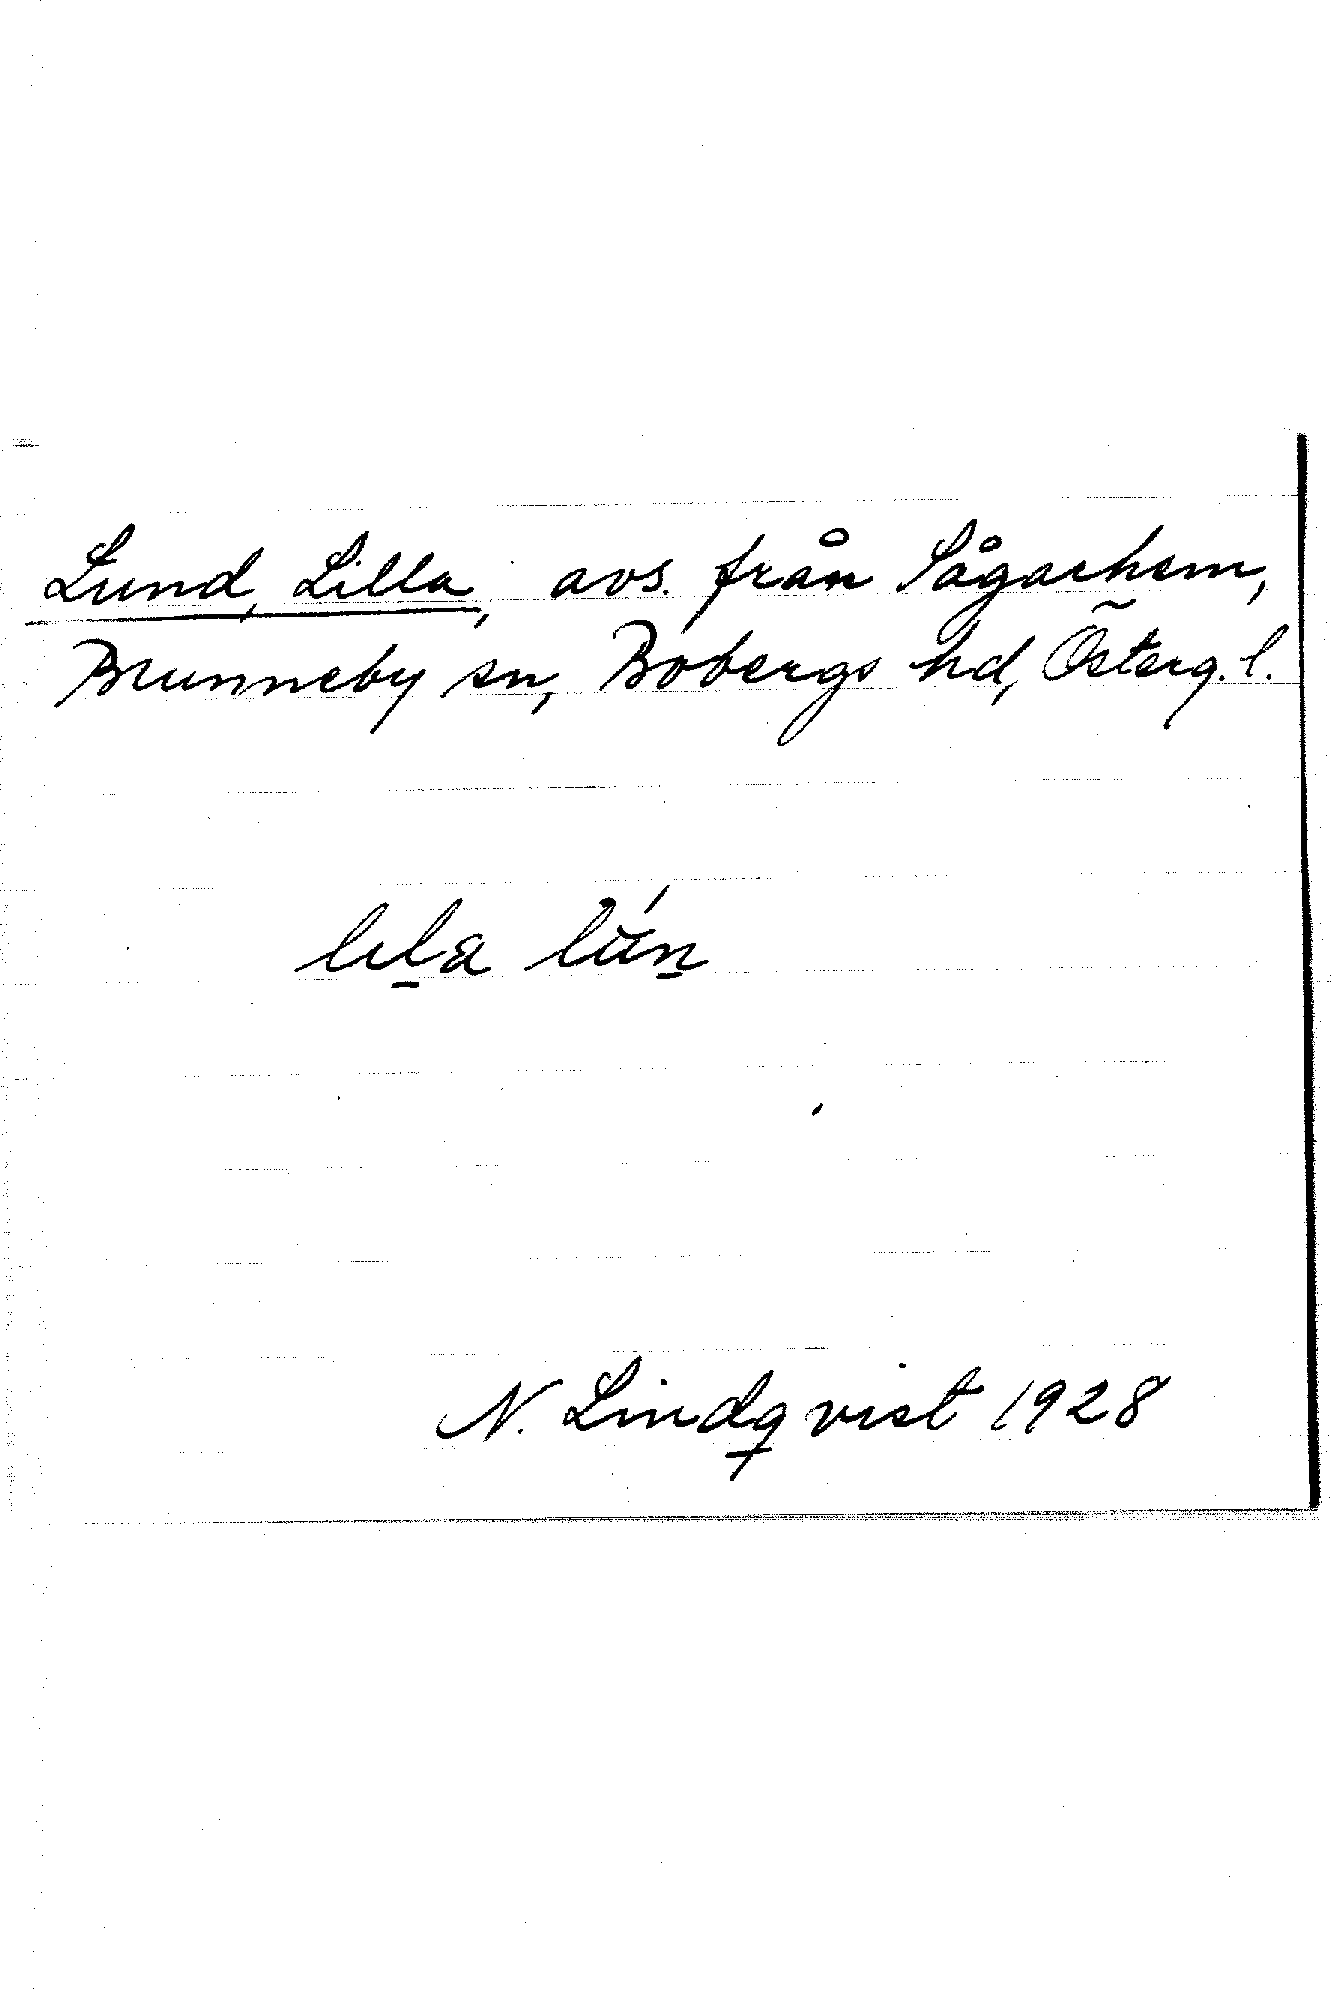 Lund, Lilla, avs. från Sågarhem,
Brunneby sn, Bobergs hd, Österg. l.
lɩla lún
N. Lindqvist 1928